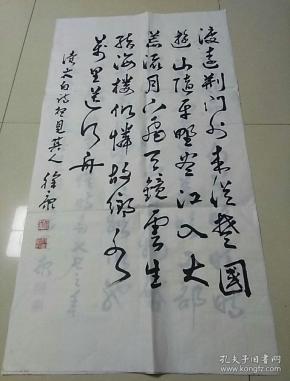 渡远荆门外来从楚国
游山随平野尽江入大
荒流月下飞天镜云生
结海楼仍怜故乡水
万里送行舟
读太白诗想见其人 徐康
孔夫子旧书网